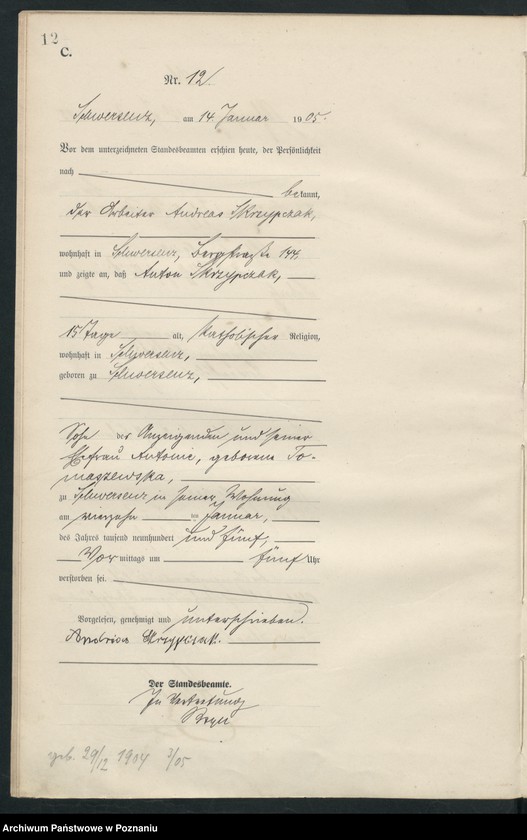 12
C.
Nr. 12.
Schwersenz, am 14 Januar 1905.
Vor dem unterzeichneten Standesbeamten erschien heute, der Persönlichkeit
nach bekannt,
der Arbeiter Andreas Skrzypczak,
wohnhaft in Schwersenz, Bergstraße 144,
und zeigte an, daß Anton Skrzypczak,
15 Tage alt, katholischer Religion,
wohnhaft in Schwersenz,
geboren zu Schwersenz,
Sohn des Anzeigenden und seiner
Ehefrau Antonie, geborene To-
maszewska,
zu Schwersenz in seiner Wohnung
am vierzehn im Januar,
des Jahres tausend neunhundert und fünf,
Vor mittags um fünf Uhr
verstorben sei.
Vorgelesen, genehmigt und unterschrieben.
Andreas Skrzypczak.
Der Standesbeamte.
In Vertretung
geb. 29/12 1904 3/05
Archiwum Państwowe w Poznaniu